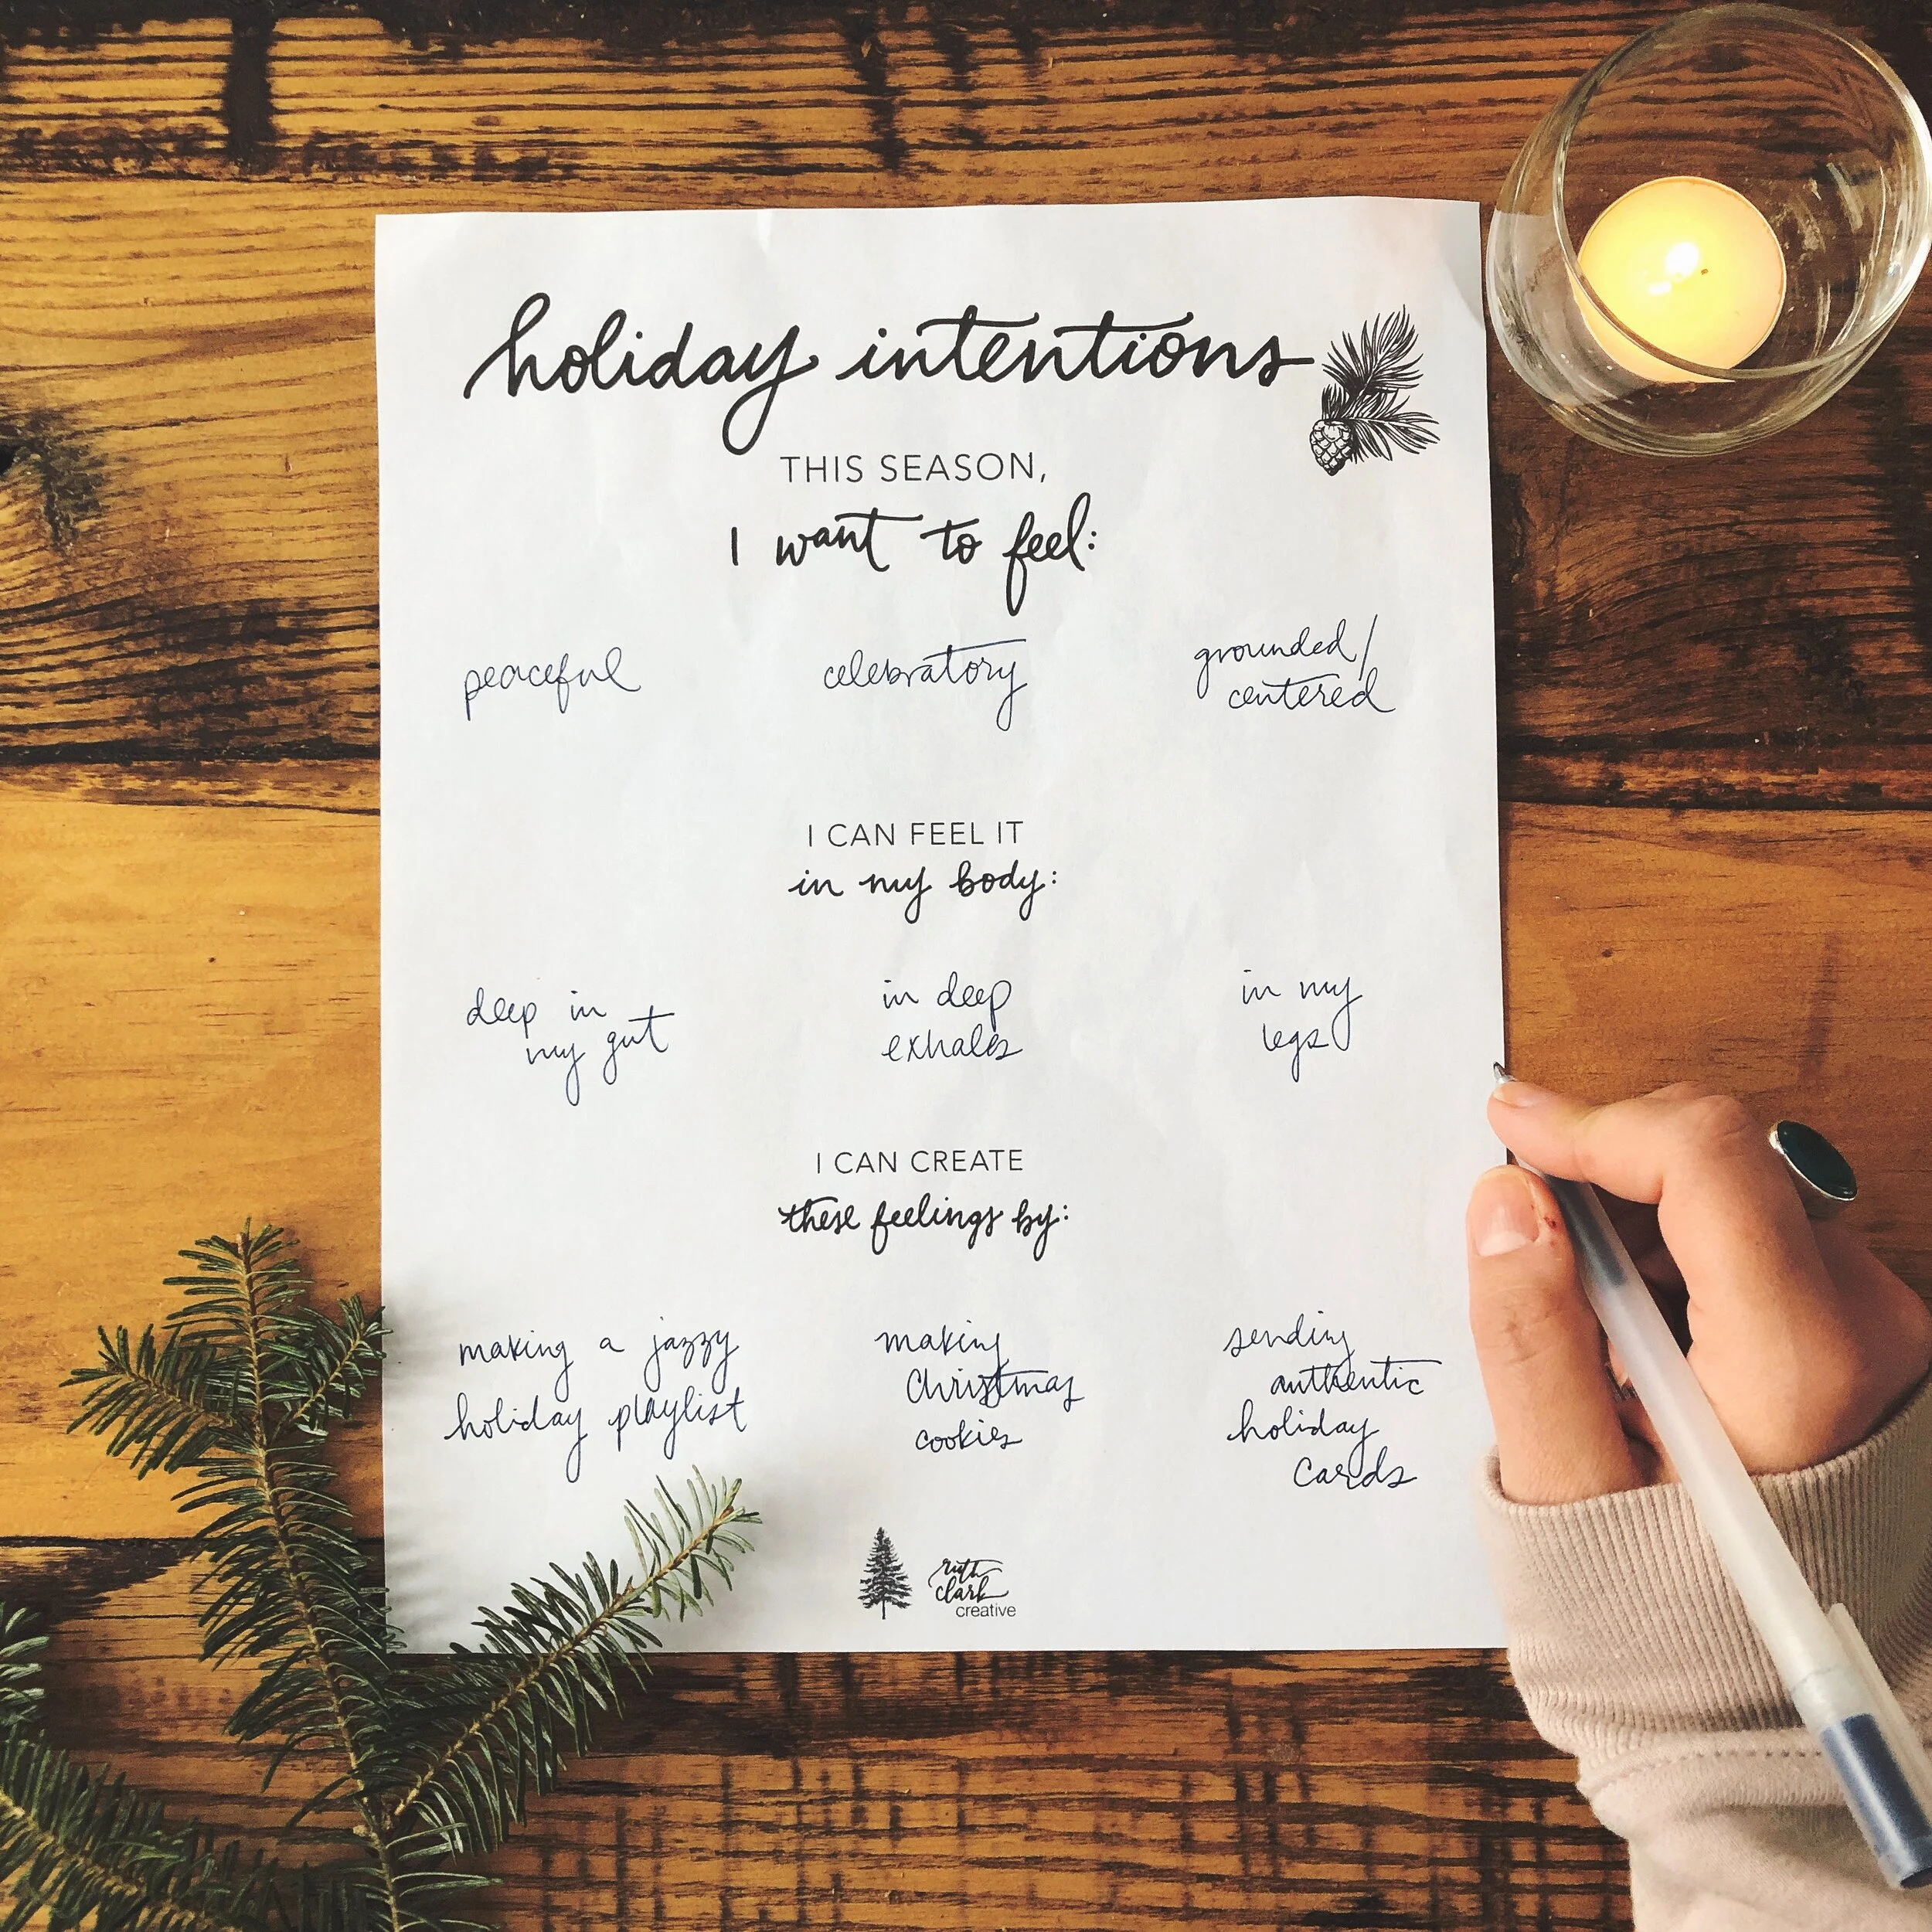 holiday intentions
THIS SEASON,
I want to feel:
peaceful
celebratory
grounded/
centered
I CAN FEEL IT
in my body:
deep in
my gut
in deep
exhales
in my
legs
I CAN CREATE
these feelings by:
making a jazzy
holiday playlist
making
Christmas
cookies
sending
authentic
holiday
cards
ruth
clark
creative